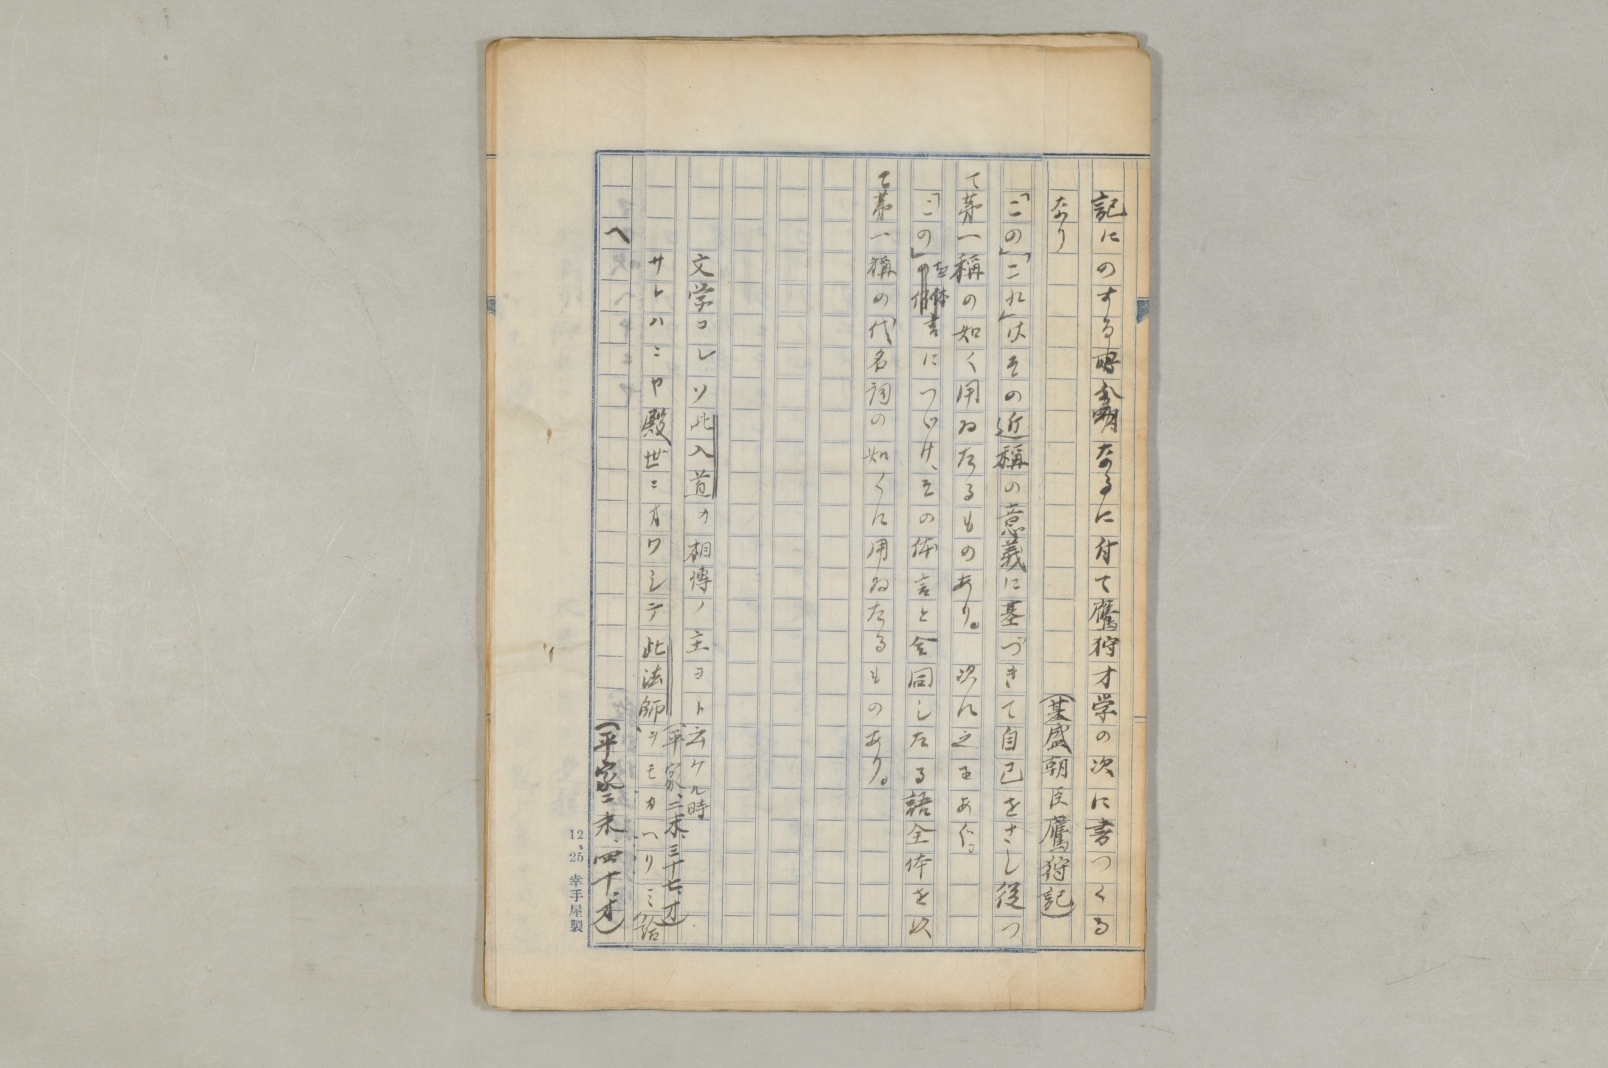 記にのする 分明なるに付て鷹狩才学の次に書つくる
なり
(基盛朝臣鷹狩記)
「この」「これ」はその近称の意義に基づきて自己をさし従つ
て第一稱の如く用ゐたるものあり。次に之をあぐ。
「この」を体言につゞけ、その体言と合同したる語全体を以
て第一稱の代名詞の如くに用ゐたるものあり。
文学コレソ此入道カ相傳ノ主ヨト云ケル時
(平家、二末、三十七、オ)
サレハニヤ殿世ニオワシテ此法師ヲモカヘリミ給
ヘ
(平家二末、四十、オ)
12、25 幸手屋製